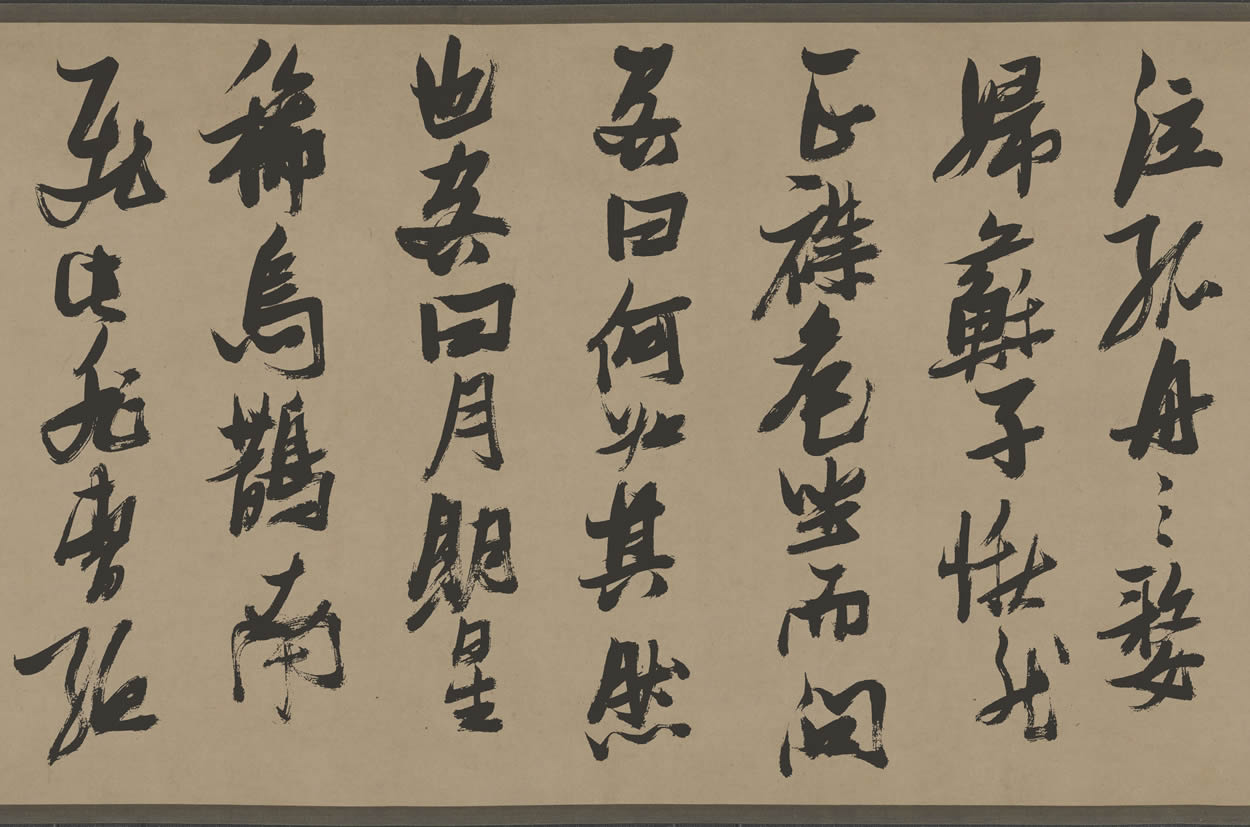 泣孤舟之嫠
婦蘇子愀然
正襟危坐而問
客曰何為其然
也客曰月明星
稀烏鵲南
飛此非曹孟